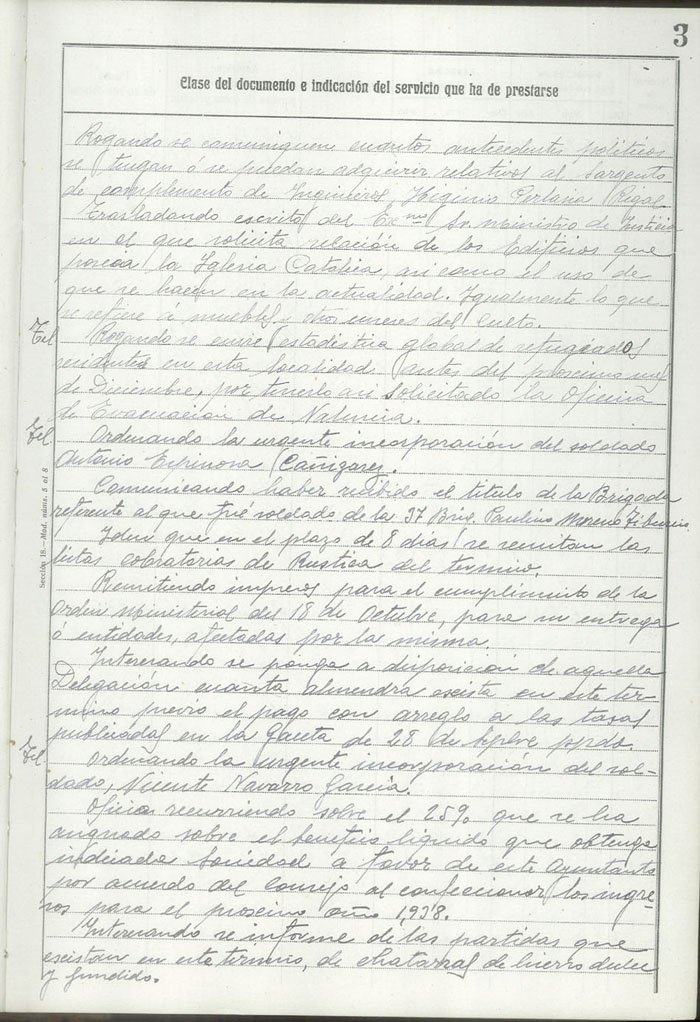 3
Clase del documento e indicación del servicio que ha de prestarse
Rogando se comuniquen cuantos antecedentes politicos
se tengan ó se puedan adquirir relativos al Sargento
de complemento de Ingenieros, Higinio Perlasia Rigal
Trasladando escrito del Excmo Sr. Ministro de Justicia
en el que solicita relación de los Edificios que
poseia la Iglesia Católica, asi como el uso de
que se hacen en la actualidad. Igualmente lo que
se refiere á muebles y otros enseres del Culto.
Tel Rogando se envie estadistica global de refugiados
residentes en esta localidad antes del proximo mes
de Diciembre, por tenerlo asi solicitado la Oficina
de Evacuación de Valencia.
Tel. Ordenando la urgente incorporación del soldado
Antonio Espinosa Cañizarez.
Comunicando haber recibido el titulo de la Brigada
referente al que fué soldado de la 37 Brig. Paulino Moreno Tiburcio
Idem que en el plazo de 8 dias se remitan las
listas cobratorias de Rustica del termino.
Sección 18.—Mod. núms. 5 al 8
Remitiendo impresos para el cumplimiento de la
Orden Ministerial del 18 de Octubre, para su entrega
ó entidades, afectadas por la misma.
Interesando se ponga a disposicion de aquella
Delegación cuanta almendra exista en este ter-
mino previo el pago con arreglo a las tasas
publicadas en la Gaceta de 28 de Spbre ppdo.
Tel. Ordenando la urgente incorporación del sol-
dado, Vicente Navarro Garcia.
Oficio recurriendo sobre el 25% que se ha
asignado sobre el beneficio liquido que obtenga
indiciada Sociedad a favor de este Ayuntamto
por acuerdo del Consejo al confeccionar los ingre-
sos para el proximo año 1,938.
Interesando se informe de las partidas que
existan en este termino, de chatarras de hierro dulce
y fundido.